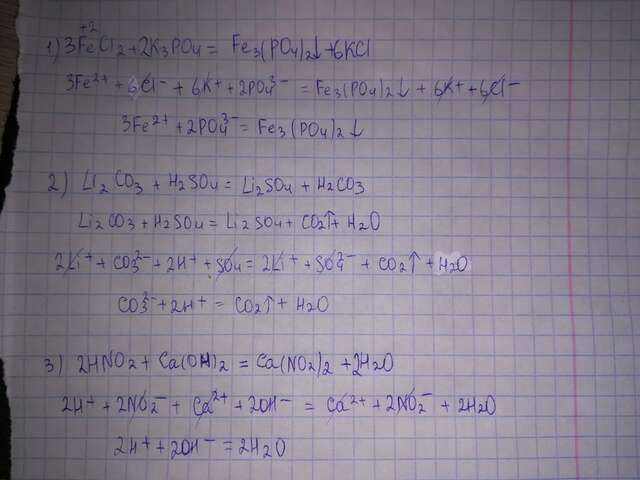 +2
1) 3FeCl2 + 2K3PO4 = Fe3(PO4)2↓ + 6KCl
3Fe2+ + 6Cl- + 6K+ + 2PO43- = Fe3(PO4)2↓ + 6K+ + 6Cl-
3Fe2+ + 2PO43- = Fe3(PO4)2↓
2) Li2CO3 + H2SO4 = Li2SO4 + H2CO3
Li2CO3 + H2SO4 = Li2SO4 + CO2↑ + H2O
2Li+ + CO32- + 2H+ + SO4 = 2Li+ + SO42- + CO2↑ + H2O
CO32- + 2H+ = CO2↑ + H2O
3) 2HNO2 + Ca(OH)2 = Ca(NO2)2 + 2H2O
2H+ + 2NO2- + Ca2+ + 2OH- = Ca2+ + 2NO2- + 2H2O
2H+ + 2OH- = 2H2O